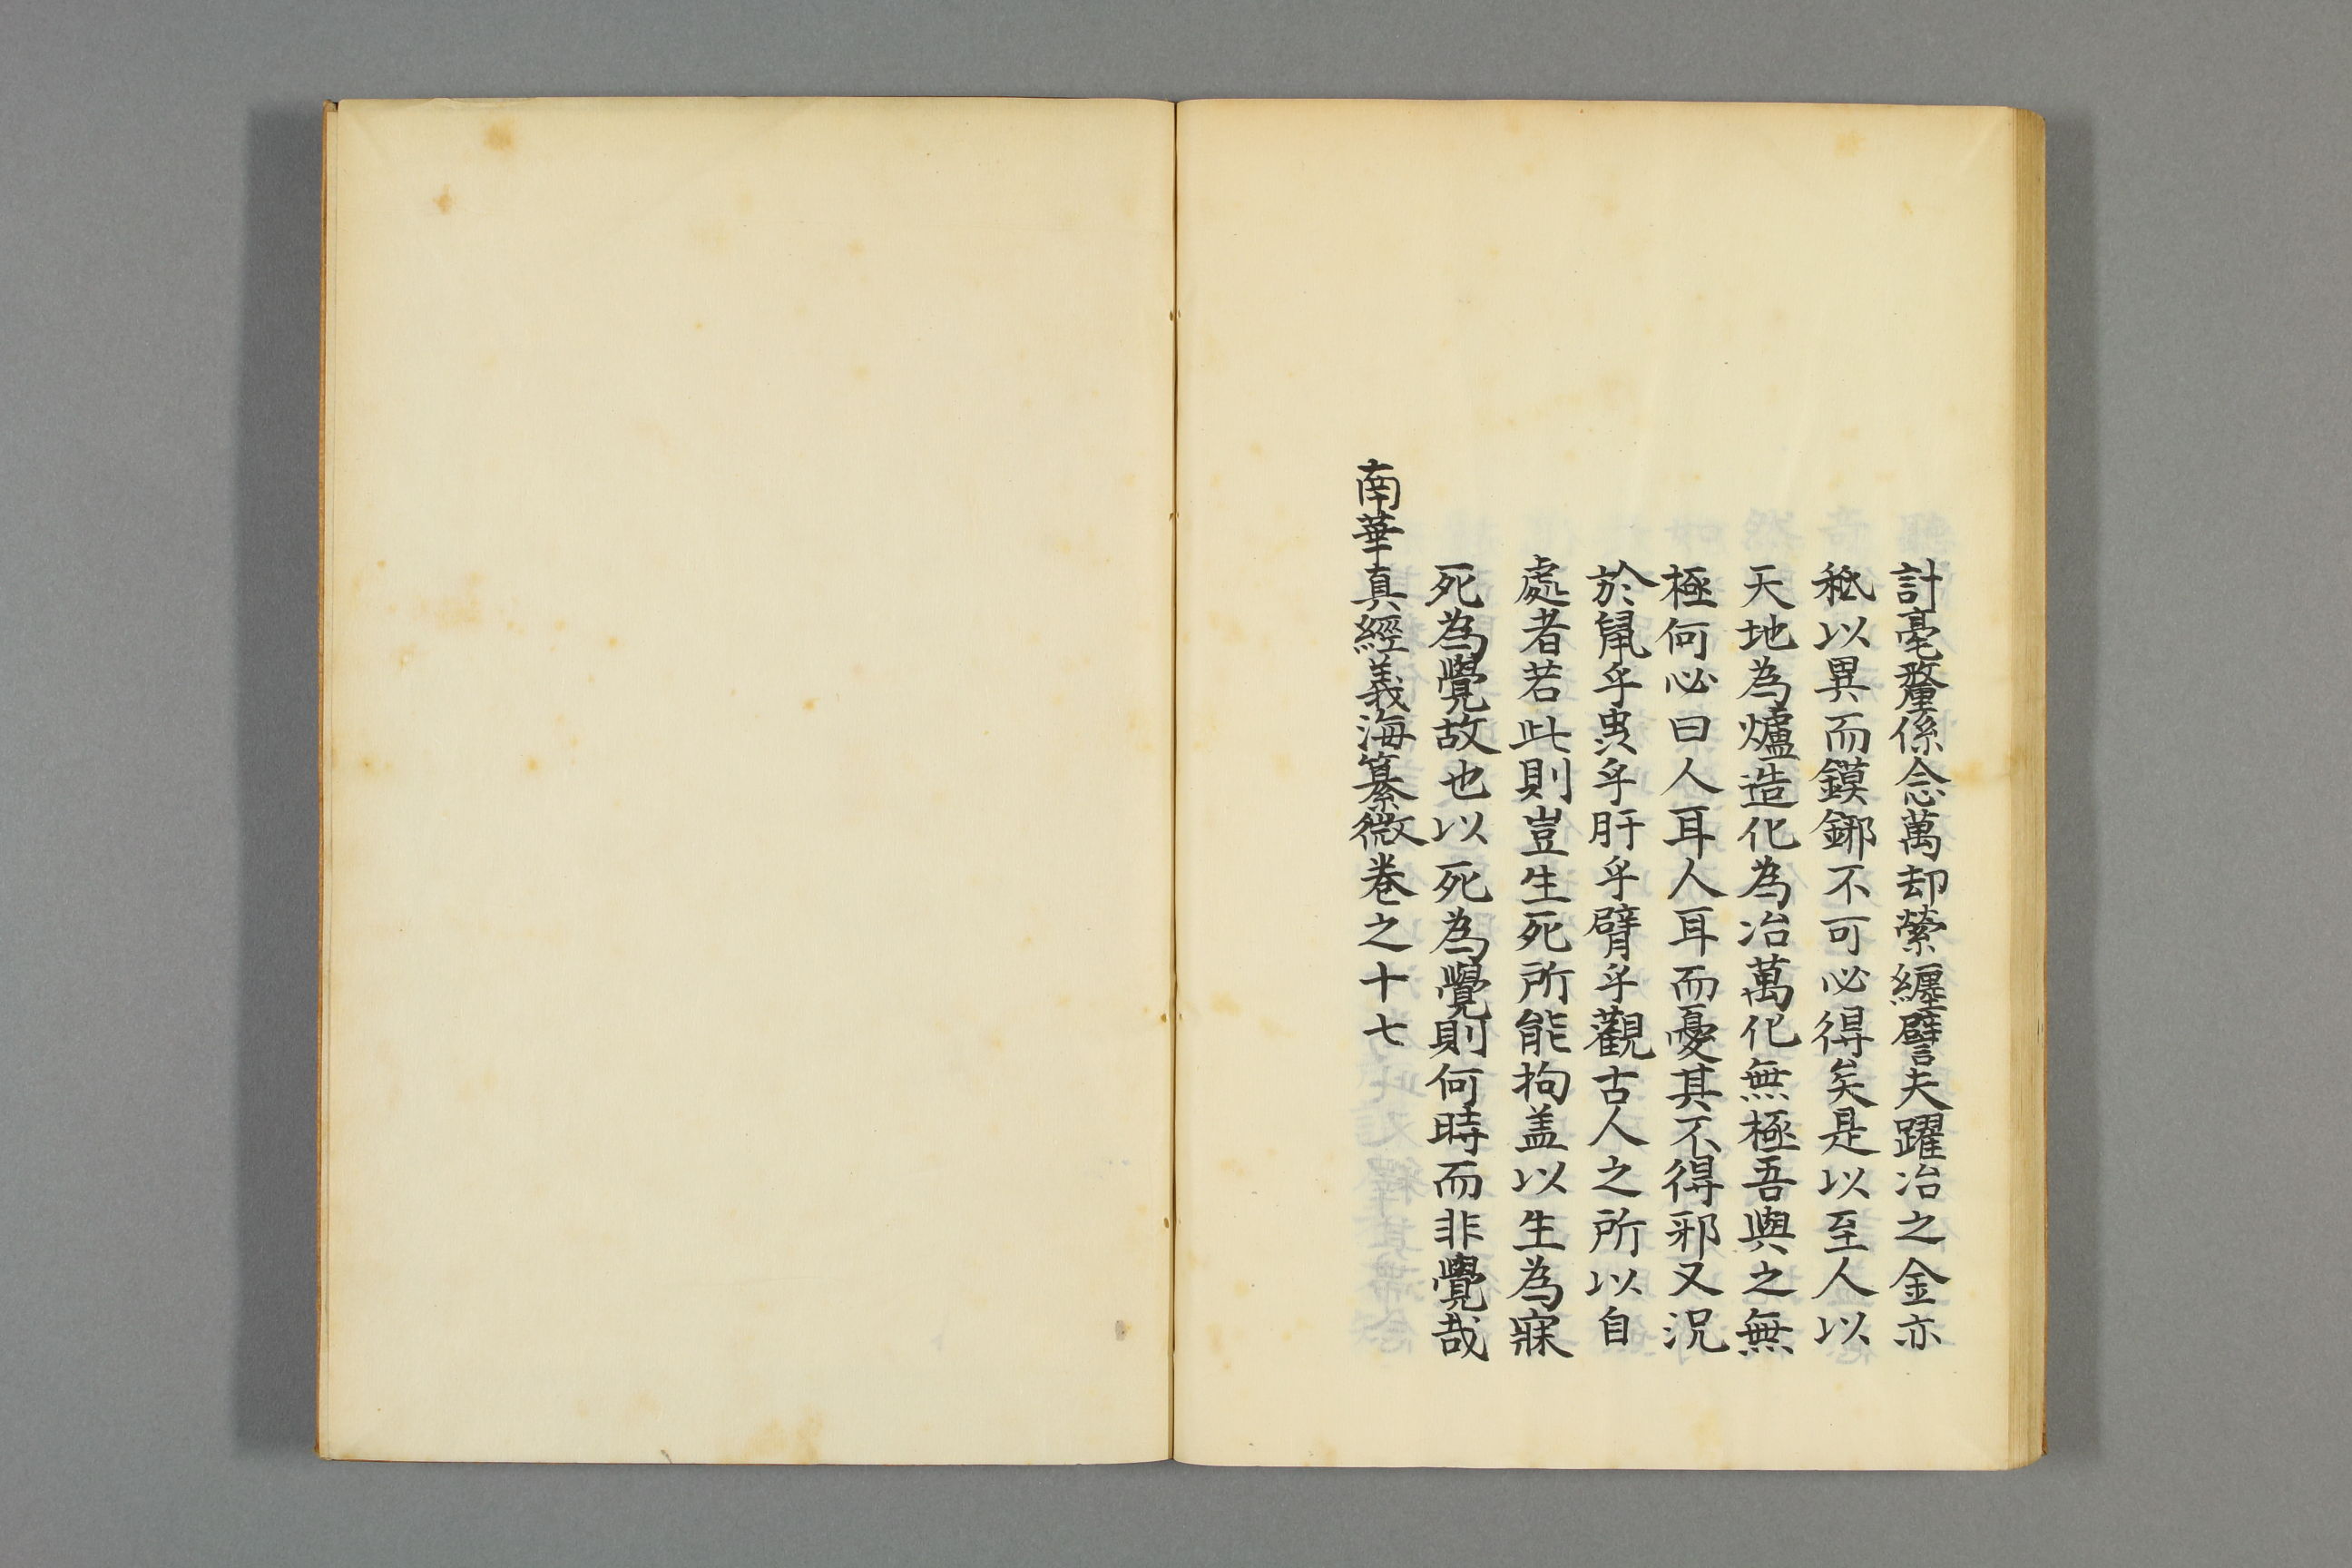 計毫釐係念萬却縈纏譬夫躍冶之金亦
秪以異而鏌鋣不可必得矣是以至人以
天地為爐造化為冶萬化無極吾與之無
極何必曰人耳人耳而憂其不得邪又況
於䑕乎䖝乎肝乎臂乎觀古人之所以自
處者若此則豈生死所能拘盖以生為寐
死為覺故也以死為覺則何時而非覺哉
南華真經義海纂微卷之十七